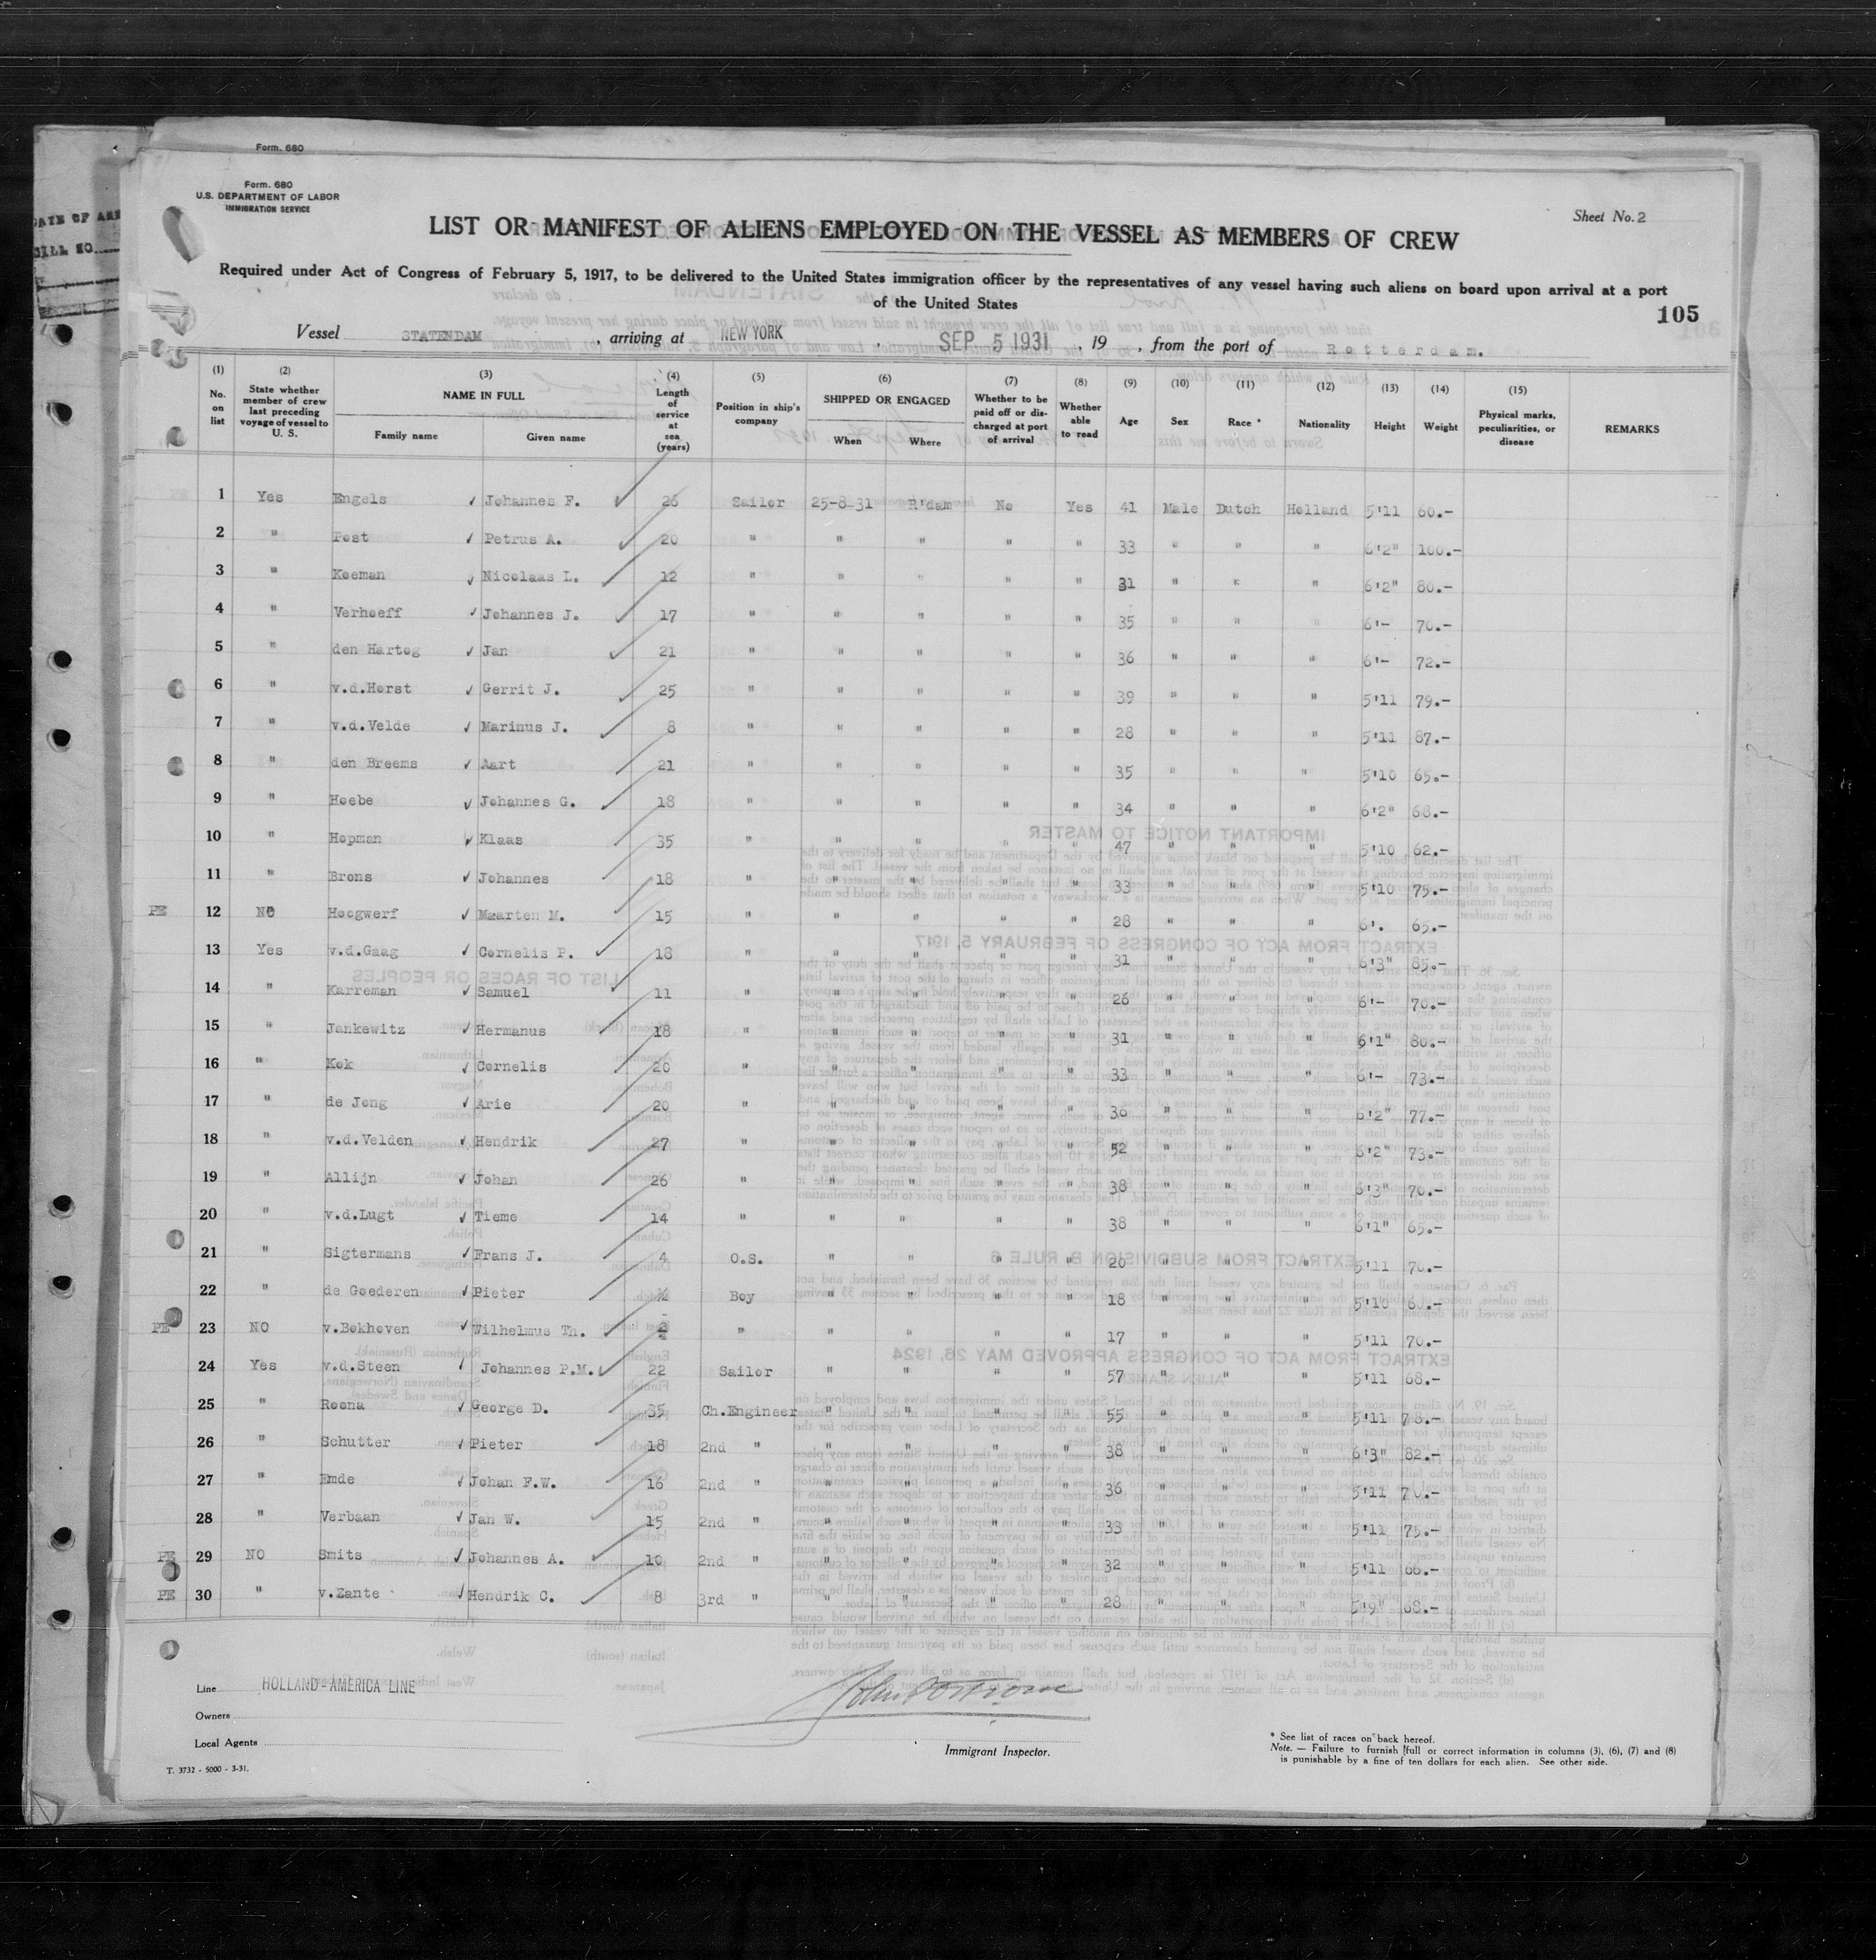 Form. 680
Form. 680
U.S. DEPARTMENT OF LABOR
IMMIGRATION SERVICE
Sheet No. 2
LIST OR MANIFEST OF ALIENS EMPLOYED ON THE VESSEL AS MEMBERS OF CREW
Required under Act of Congress of February 5, 1917, to be delivered to the United States immigration officer by the representatives of any vessel having such aliens on board upon arrival at a port
of the United States
105
Vessel STATENDAM , arriving at NEW YORK , SEP 5 1931 , 19 , from the port of Rotterdam.
(1) No. on list (2) State whether member of crew last preceding voyage of vessel to U. S. (3) NAME IN FULL Family name Given name (4) Length of service at sea (years) (5) Position in ship's company (6) SHIPPED OR ENGAGED When Where (7) Whether to be paid off or discharged at port of arrival (8) Whether able to read (9) Age (10) Sex (11) Race * (12) Nationality (13) Height (14) Weight (15) Physical marks, peculiarities, or disease REMARKS
1 Yes Engels Johannes F. 26 Sailor 25-8-31 R'dam No Yes 41 Male Dutch Holland 5'11 60.-
2 " Post Petrus A. 20 " " " " " 33 " " " 6'2" 100.-
3 " Koeman Nicolaas L. 12 " " " " " 31 " " " 6'2" 80.-
4 " Verhoeff Johannes J. 17 " " " " " 35 " " " 6'- 70.-
5 " den Hartog Jan 21 " " " " " 36 " " " 6'- 72.-
6 " v.d.Horst Gerrit J. 25 " " " " " 39 " " " 5'11 79.-
7 " v.d.Velde Marinus J. 8 " " " " " 28 " " " 5'11 87.-
8 " den Breems Aart 21 " " " " " 35 " " " 5'10 65.-
9 " Hoebe Johannes G. 18 " " " " " 34 " " " 6'2" 68.-
10 " Hopman Klaas 35 " " " " " 47 " " " 5'10 62.-
11 " Brons Johannes 18 " " " " " 33 " " " 5'10 75.-
PE 12 NO Hoogwerf Maarten M. 15 " " " " " 28 " " " 6'. 65.-
13 Yes v.d.Gaag Cornelis P. 18 " " " " " 31 " " " 6'3" 85.-
14 " Karreman Samuel 11 " " " " " 26 " " " 6'- 70.-
15 " Jankewitz Hermanus 18 " " " " " 31 " " " 6'1" 80.-
16 " Kok Cornelis 20 " " " " " 33 " " " 6'- 73.-
17 " de Jong Arie 20 " " " " " 36 " " " 6'2" 77.-
18 " v.d.Velden Hendrik 27 " " " " " 52 " " " 6'2" 73.-
19 " Allijn Johan 26 " " " " " 38 " " " 6'3" 70.-
20 " v.d.Lugt Tieme 14 " " " " " 38 " " " 6'1" 65.-
21 " Sigtermans Frans J. 4 O.S. " " " " 20 " " " 5'11 70.-
22 " de Goederen Pieter ½ Boy " " " " 18 " " " 5'10 60.-
PE 23 NO v.Bokhoven Wilhelmus Th. " " " " " 17 " " " 5'11 70.-
24 Yes v.d.Steen Johannes P.M. 22 Sailor " " " " 57 " " " 5'11 68.-
25 " Roona George D. 35 Ch.Engineer " " " " 55 " " " 5'11 78.-
26 " Schutter Pieter 18 2nd " " " " " 38 " " " 6'3" 82.-
27 " Emde Johan F.W. 16 2nd " " " " " 36 " " " 5'11 70.-
28 " Verbaan Jan W. 15 2nd " " " " " 33 " " " 5'11 75.-
PE 29 NO Smits Johannes A. 10 2nd " " " " " 32 " " " 5'11 66.-
PE 30 " v.Zante Hendrik C. 8 3rd " " " " " 28 " " " 5'9" 68.-
Line HOLLAND-AMERICA LINE
Owners
Local Agents
Immigrant Inspector.
T. 3732 - 5000 - 3-31.
* See list of races on back hereof.
Note. — Failure to furnish full or correct information in columns (3), (6), (7) and (8)
is punishable by a fine of ten dollars for each alien. See other side.